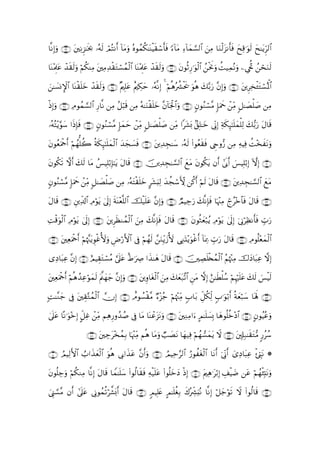 ٱلرِّيَٰحَ لَوَٰقِحَ فَأَنزَلْنَا مِنَ ٱلسَّمَآءِ مَآءً فَأَسْقَيْنَٰكُمُوهُ وَمَآ أَنتُمْ لَهُۥ بِخَٰزِنِينَ ۝ وَإِنَّا
لَنَحْنُ نُحْىِۦ وَنُمِيتُ وَنَحْنُ ٱلْوَٰرِثُونَ ۝ وَلَقَدْ عَلِمْنَا ٱلْمُسْتَقْدِمِينَ مِنكُمْ وَلَقَدْ عَلِمْنَا
ٱلْمُسْتَـْٔخِرِينَ ۝ وَإِنَّ رَبَّكَ هُوَ يَحْشُرُهُمْ ۚ إِنَّهُۥ حَكِيمٌ عَلِيمٌ ۝ وَلَقَدْ خَلَقْنَا ٱلْإِنسَٰنَ
مِن صَلْصَٰلٍ مِّنْ حَمَإٍ مَّسْنُونٍ ۝ وَٱلْجَآنَّ خَلَقْنَٰهُ مِن قَبْلُ مِن نَّارِ ٱلسَّمُومِ ۝ وَإِذْ
قَالَ رَبُّكَ لِلْمَلَٰٓئِكَةِ إِنِّى خَٰلِقٌۢ بَشَرًا مِّن صَلْصَٰلٍ مِّنْ حَمَإٍ مَّسْنُونٍ ۝ فَإِذَا سَوَّيْتُهُۥ
وَنَفَخْتُ فِيهِ مِن رُّوحِى فَقَعُوا۟ لَهُۥ سَٰجِدِينَ ۝ فَسَجَدَ ٱلْمَلَٰٓئِكَةُ كُلُّهُمْ أَجْمَعُونَ
۝ إِلَّآ إِبْلِيسَ أَبَىٰٓ أَن يَكُونَ مَعَ ٱلسَّٰجِدِينَ ۝ قَالَ يَٰٓإِبْلِيسُ مَا لَكَ أَلَّا تَكُونَ
مَعَ ٱلسَّٰجِدِينَ ۝ قَالَ لَمْ أَكُن لِّأَسْجُدَ لِبَشَرٍ خَلَقْتَهُۥ مِن صَلْصَٰلٍ مِّنْ حَمَإٍ مَّسْنُونٍ
۝ قَالَ فَٱخْرُجْ مِنْهَا فَإِنَّكَ رَجِيمٌ ۝ وَإِنَّ عَلَيْكَ ٱللَّعْنَةَ إِلَىٰ يَوْمِ ٱلدِّينِ ۝ قَالَ
رَبِّ فَأَنظِرْنِىٓ إِلَىٰ يَوْمِ يُبْعَثُونَ ۝ قَالَ فَإِنَّكَ مِنَ ٱلْمُنظَرِينَ ۝ إِلَىٰ يَوْمِ ٱلْوَقْتِ
ٱلْمَعْلُومِ ۝ قَالَ رَبِّ بِمَآ أَغْوَيْتَنِى لَأُزَيِّنَنَّ لَهُمْ فِى ٱلْأَرْضِ وَلَأُغْوِيَنَّهُمْ أَجْمَعِينَ ۝
إِلَّا عِبَادَكَ مِنْهُمُ ٱلْمُخْلَصِينَ ۝ قَالَ هَٰذَا صِرَٰطٌ عَلَىَّ مُسْتَقِيمٌ ۝ إِنَّ عِبَادِى
لَيْسَ لَكَ عَلَيْهِمْ سُلْطَٰنٌ إِلَّا مَنِ ٱتَّبَعَكَ مِنَ ٱلْغَاوِينَ ۝ وَإِنَّ جَهَنَّمَ لَمَوْعِدُهُمْ أَجْمَعِينَ
۝ لَهَا سَبْعَةُ أَبْوَٰبٍ لِّكُلِّ بَابٍ مِّنْهُمْ جُزْءٌ مَّقْسُومٌ ۝ إِنَّ ٱلْمُتَّقِينَ فِى جَنَّٰتٍ
وَعُيُونٍ ۝ ٱدْخُلُوهَا بِسَلَٰمٍ ءَامِنِينَ ۝ وَنَزَعْنَا مَا فِى صُدُورِهِم مِّنْ غِلٍّ إِخْوَٰنًا عَلَىٰ
سُرُرٍ مُّتَقَٰبِلِينَ ۝ لَا يَمَسُّهُمْ فِيهَا نَصَبٌ وَمَا هُم مِّنْهَا بِمُخْرَجِينَ ۝
۞ نَبِّئْ عِبَادِىٓ أَنِّىٓ أَنَا ٱلْغَفُورُ ٱلرَّحِيمُ ۝ وَأَنَّ عَذَابِى هُوَ ٱلْعَذَابُ ٱلْأَلِيمُ ۝
وَنَبِّئْهُمْ عَن ضَيْفِ إِبْرَٰهِيمَ ۝ إِذْ دَخَلُوا۟ عَلَيْهِ فَقَالُوا۟ سَلَٰمًا قَالَ إِنَّا مِنكُمْ وَجِلُونَ
۝ قَالُوا۟ لَا تَوْجَلْ إِنَّا نُبَشِّرُكَ بِغُلَٰمٍ عَلِيمٍ ۝ قَالَ أَبَشَّرْتُمُونِى عَلَىٰٓ أَن مَّسَّنِىَ